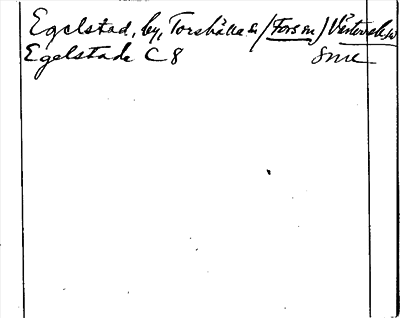 Egelstad, by, Torshälla s. (Fors sn) Västerrek. hd
Egelstade C 8 Smk